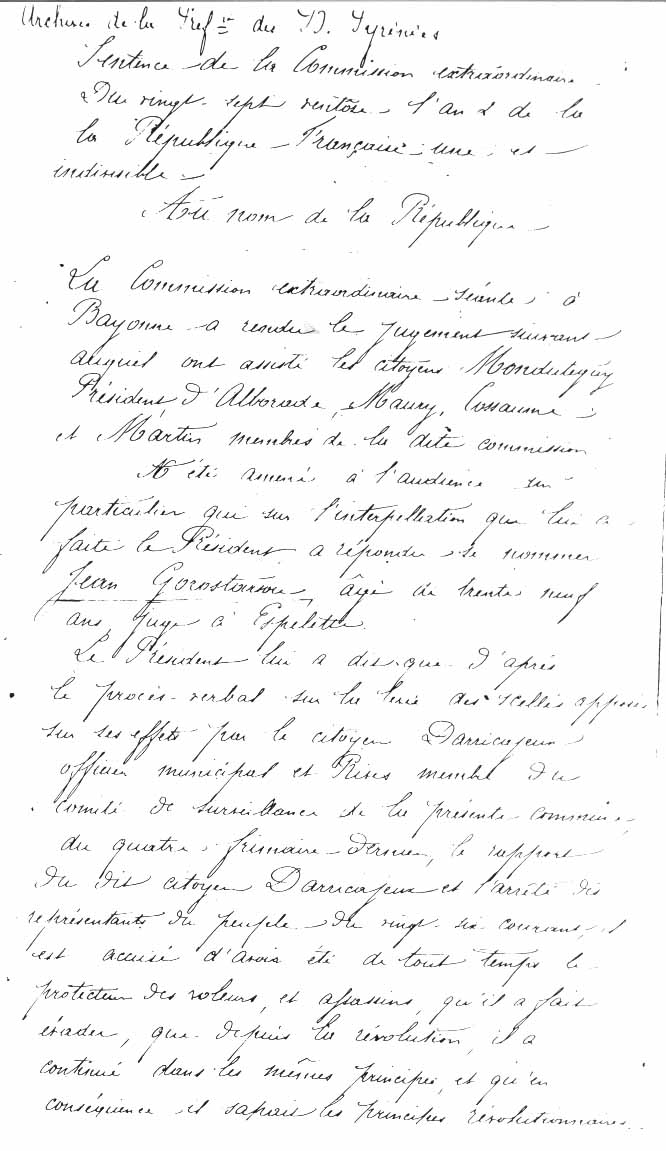 Archives de la Préfre des B. Pyrénées
Sentence de la Commission extraordinaire
Du vingt-sept ventôse - l'an 2 de la
la République - Française - une - et -
indivisible -
Au nom de la République -
La Commission extraordinaire séante à
Bayonne a rendu le jugement suivant
auquel ont assisté les citoyens Mondutéguy
Président d'Alborade, Maury, Cossaune
et Martin membres de la dite commission
A été amené à l'audience un
particulier qui sur l'interpellation que lui a
faite le Président a répondu se nommer
Jean Gorostarsou, âgé de trente neuf
ans, Juge à Espelette.
Le Président lui a dit que d'après
le procès-verbal sur la levée des scellés apposés
sur ses effets par le citoyen Darricajeux
officier municipal et Rives membre du
Comité de surveillance de la présente commune,
du quatre frimaire dernier, le rapport
du dit citoyen Darricajeux et l'arrêté des
représentants du peuple du vingt-six courant, il
est accusé d'avoir été de tout temps le
protecteur des voleurs, et assassins, qu'il a fait
évader, que depuis la révolution, il a
continué dans les mêmes principes, et qu'en
conséquence il sapait les principes révolutionnaires